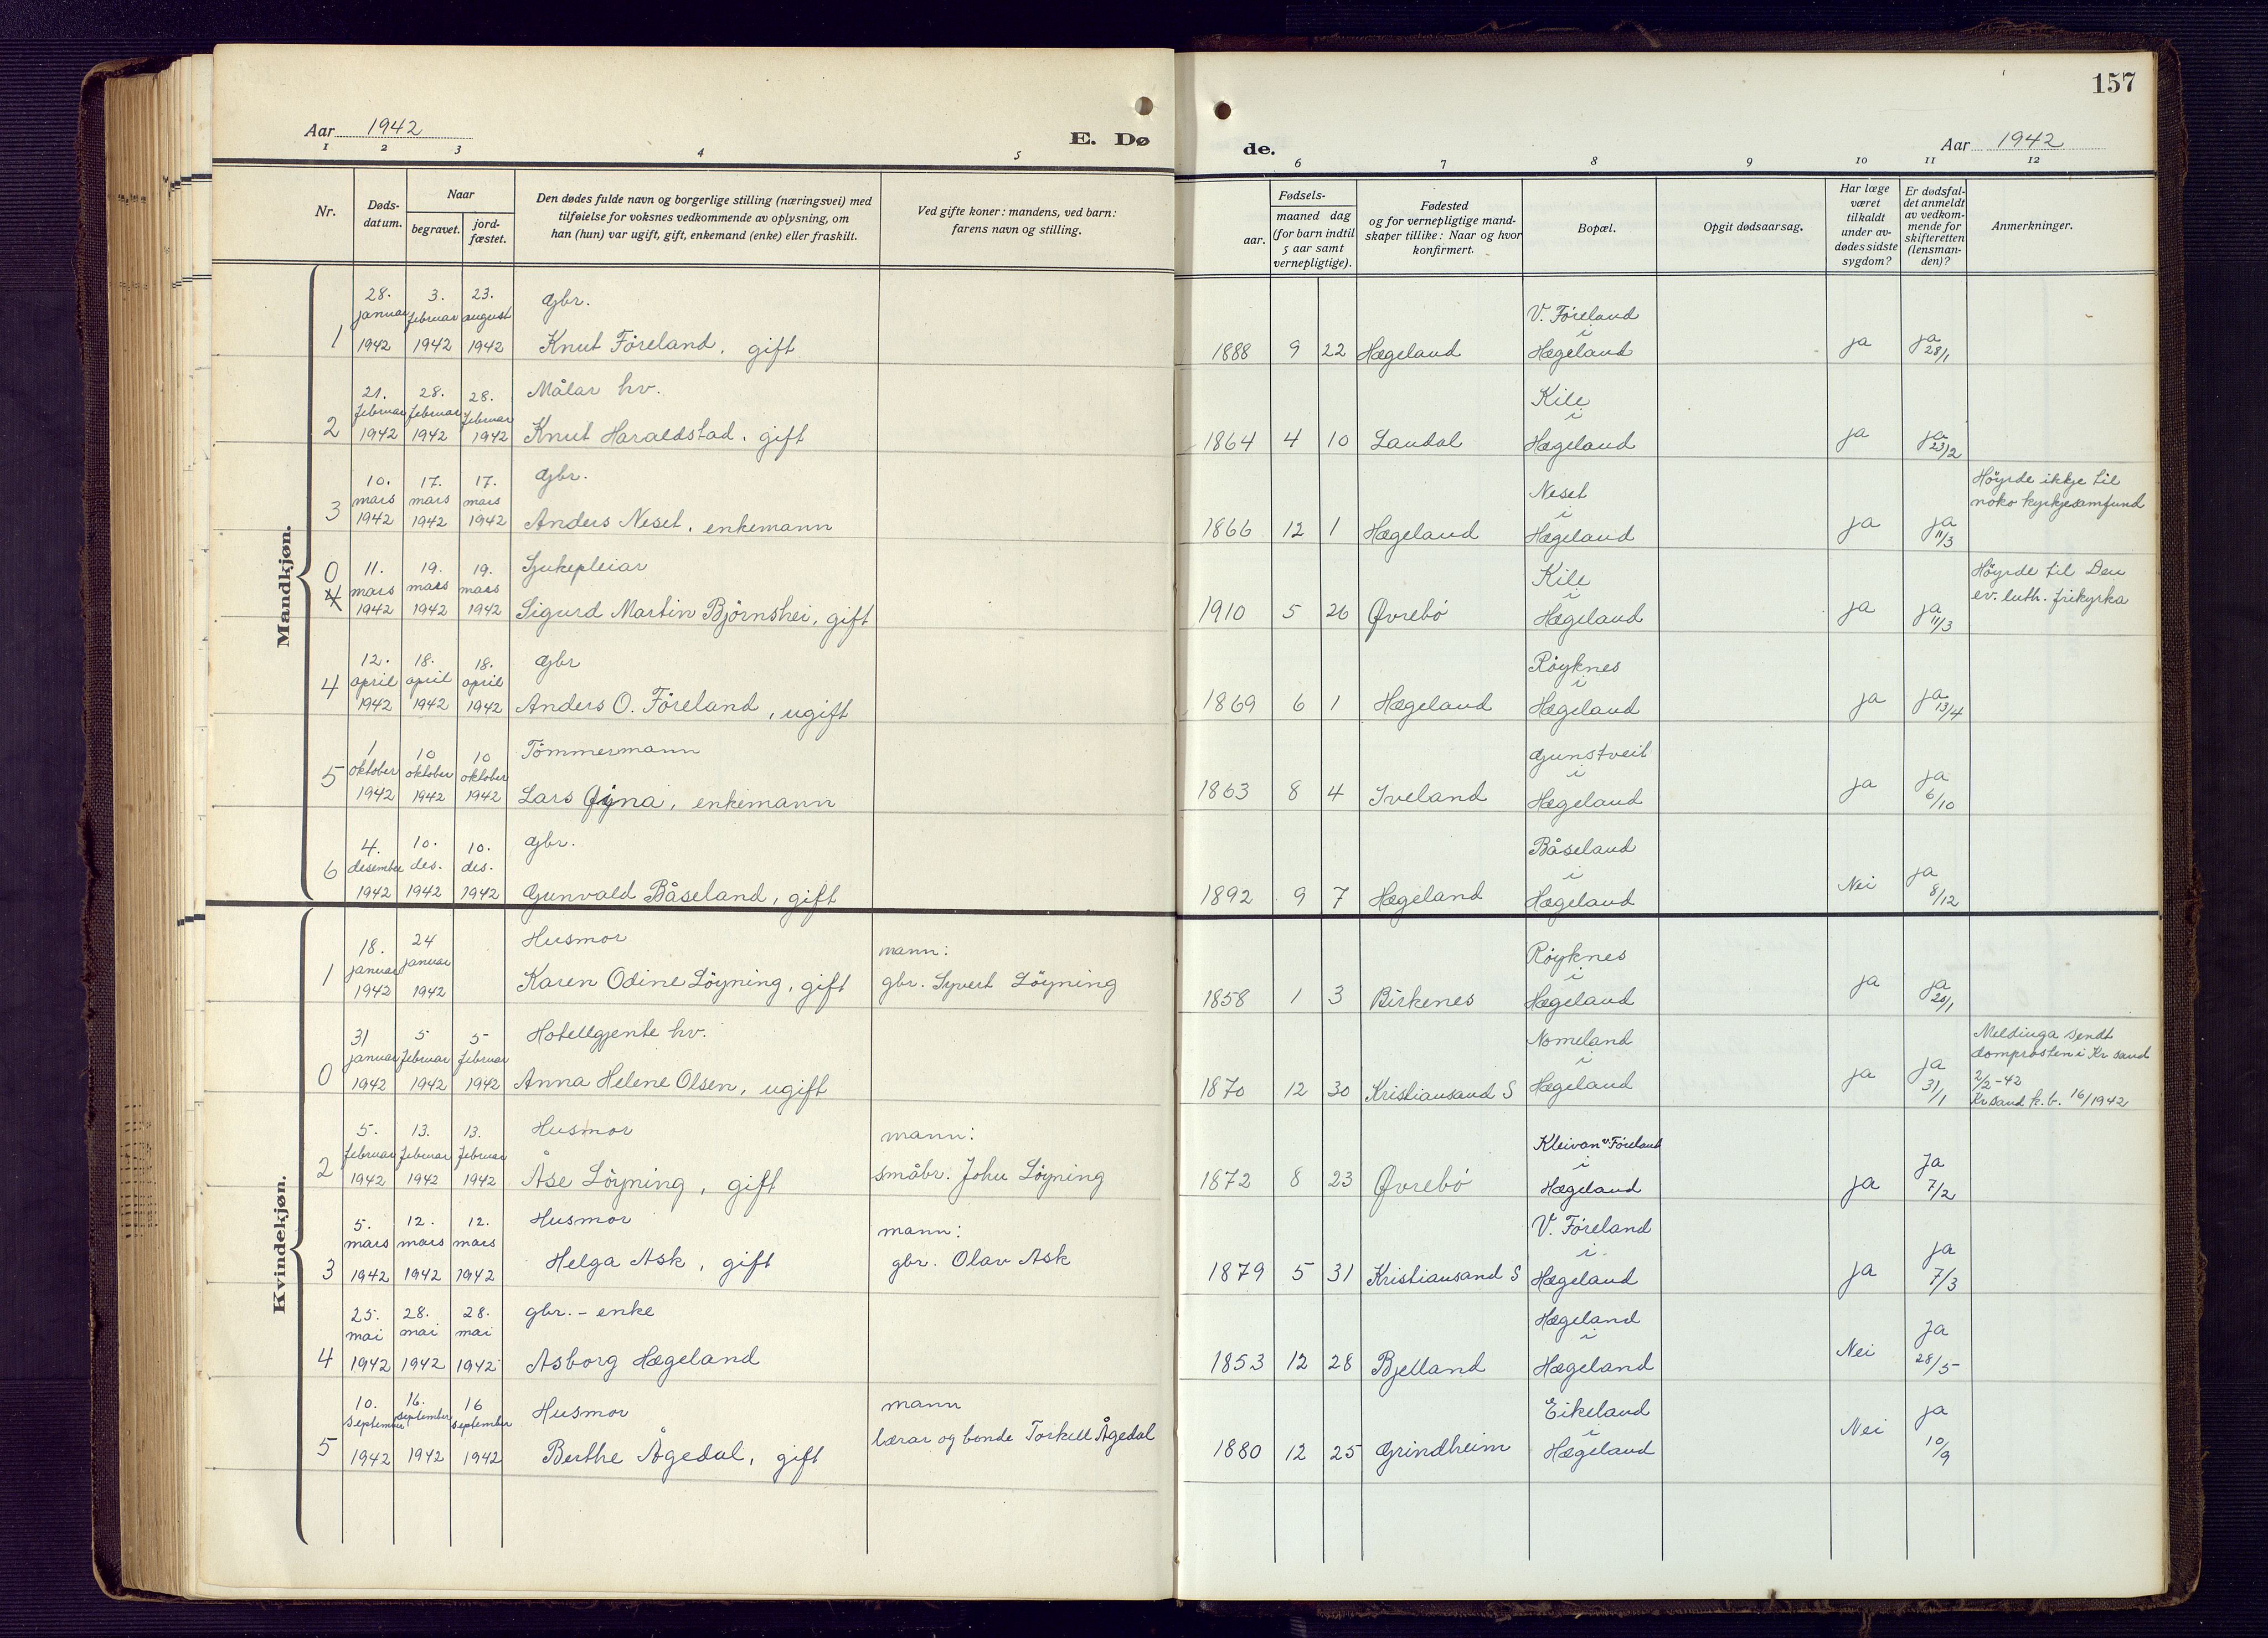 157
Aar 1942
E. Dø
de.
Aar 1942
1 2 3 4 5 6 7 8 9 10 11 12
Nr.
Døds-
datum.
Naar
begravet.
jord-
fæstet.
Den dødes fulde navn og borgerlige stilling (næringsvei) med
tilføielse for voksnes vedkommende av oplysning, om
han (hun) var ugift, gift, enkemand (enke) eller fraskilt.
Ved gifte koner: mandens, ved barn:
farens navn og stilling.
Fødsels-
aar.
maaned dag
(for barn indtil
5 aar samt
vernepligtige).
Fødested
og for vernepligtige mand-
skaper tillike: Naar og hvor
konfirmert.
Bopæl.
Opgit dødsaarsag.
Har læge
været
tilkaldt
under av-
dødes sidste
sygdom?
Er dødsfal-
det anmeldt
av vedkom-
mende for
skifteretten
(lensman-
den)?
Anmerkninger.
Mandkjøn.
28. 3. 23. gbr. V. Föreland
januar februar august i
1 1942 1942 1942 Knut Föreland, gift 1888 9 22 Hægeland Hægeland ja ja 28/1
21. 28. 28. Målar hv. Kile
februar februar februar i
2 1942 1942 1942 Knut Haraldstad, gift 1864 4 10 Laudal Hægeland ja ja 23/2
10. 17. 17. gbr. Neset Höyrde ikkje til
mars mars mars i noko kyrkjesamfund
3 1942 1942 1942 Anders Neset, enkemann 1866 12 1 Hægeland Hægeland ja ja 11/3
0 11. 19. 19. Sjukepleiar Kile Höyrde til Den
4 mars mars mars i ev. luth. frikyrka
1942 1942 1942 Sigurd Martin Björnshei, gift 1910 5 26 Øvrebö Hægeland ja ja 11/3
12. 18. 18. gbr Röyknes
4 april april april i
1942 1942 1942 Anders O. Föreland, ugift 1869 6 1 Hægeland Hægeland ja ja 13/4
1 10 10 Tömmermann Gunstveit
5 oktober oktober oktober i
1942 1942 1942 Lars Øyna, enkemann 1863 8 4 Iveland Hægeland ja ja 6/10
4. 10. 10. gbr. Båseland
6 desember des. des. i
1942 1942 1942 Gunvald Båseland, gift 1892 9 7 Hægeland Hægeland Nei ja 8/12
Kvindekjøn.
18. 24 Husmor mann: Röyknes
1 januar januar i
1942 1942 Karen Odine Löyning, gift gbr. Syvert Löyning 1858 1 3 Birkenes Hægeland ja ja 20/1
31 5 5 Hotellgjente hv. Nomeland Meldinga sendt
januar februar februar i domprosten i Kr sand
0 1942 1942 1942 Anna Helene Olsen, ugift 1870 12 30 Kristiansand S Hægeland ja ja 31/1 2/2-42
Kr sand k.b. 16/1942
5. 13. 13. Husmor mann: Kleivan v Föreland
februar februar februar i
2 1942 1942 1942 Åse Löyning, gift småbr. John Löyning 1872 8 23 Øvrebö Hægeland ja Ja 7/2
5. 12. 12. Husmor mann: V. Föreland
mars mars mars i
3 1942 1942 1942 Helga Ask, gift gbr. Olav Ask 1879 5 31 Kristiansand S Hægeland ja ja 7/3
25. 28. 28. gbr. - enke Hægeland
mai mai mai i
4 1942 1942 1942 Asborg Hægeland 1853 12 28 Bjelland Hægeland Nei Ja 28/5
10. 16. 16 Husmor mann Eikeland
september september september i
5 1942 1942 1942 Berthe Ågedal, gift lærar og bonde Torkell Ågedal 1880 12 25 Grindheim Hægeland Nei ja 10/9